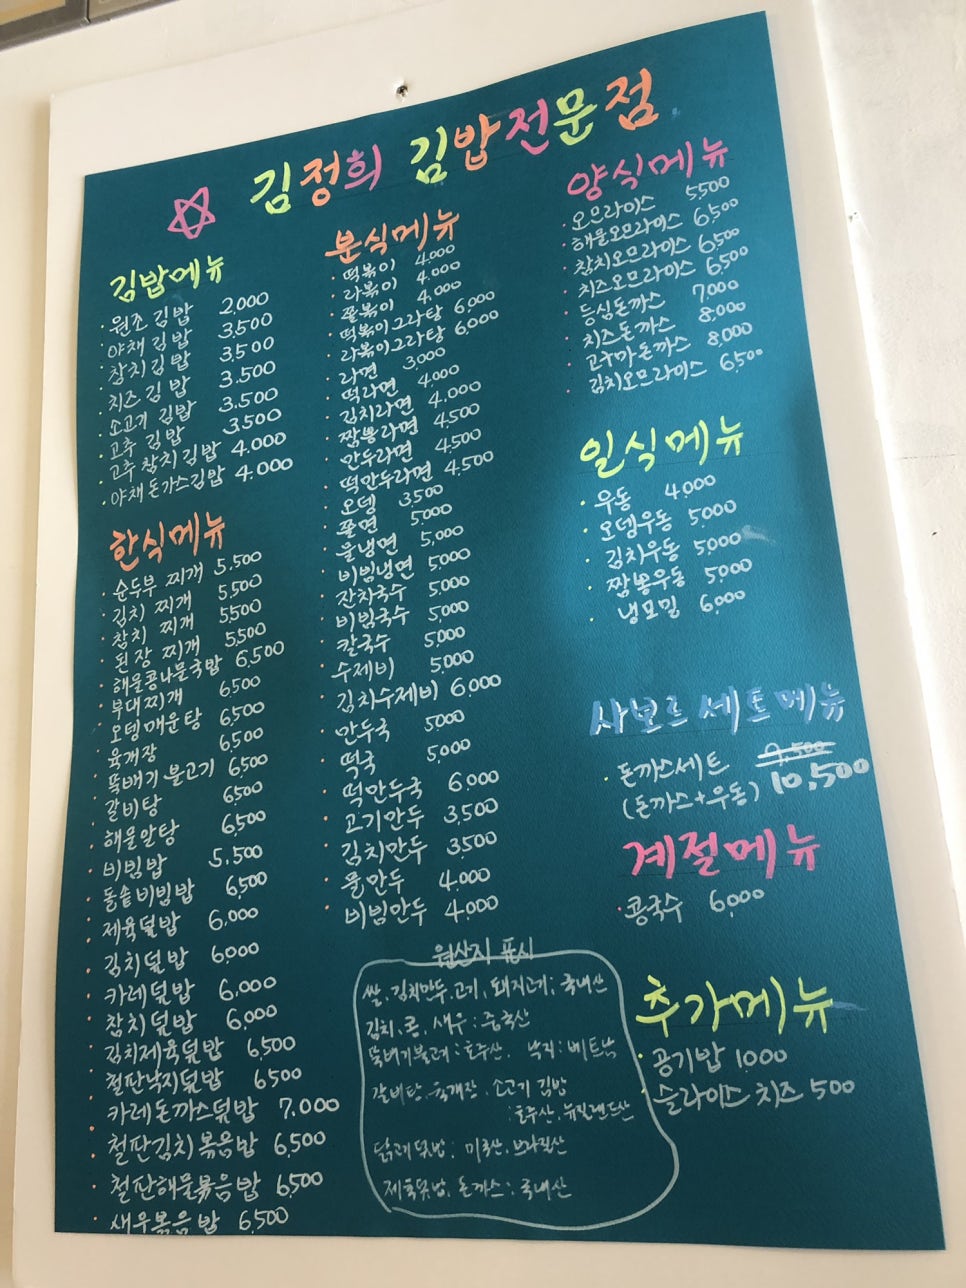 김정희 김밥전문점
김밥메뉴
원조 김밥 2,000
야채 김밥 3,500
참치김밥 3,500
치즈 김밥 3,500
소고기 김밥 3,500
고추 김밥 3500
고추 참치김밥 4,000
야채 돈가스김밥 4,000
한식메뉴
순두부 찌개 5,500
김치 찌개 5,500
참치 찌개 5,500
된장 찌개 5,500
해물콩나물국밥 6,500
부대찌개 6,500
오뎅매운탕 6,500
육개장 6,500
뚝배기 불고기 6,500
갈비탕 6,500
해물알탕 6,500
비빔밥 5,500
돌솥비빔밥 6,500
제육덮밥 6,000
김치덮밥 6,000
카레덮밥 6,000
참치덮밥 6,000
김치제육덮밥 6,500
철판낙지덮밥 6500
카레돈까스덮밥 7,000
철판김치볶음밥 6,500
철판해물볶음밥 6,500
새우볶음밥 6,500
분식메뉴
떡볶이 4.000
라볶이 4.000
쫄볶이 4.000
떡볶이그라탕 6,000
라볶이그라탕 6,000
라면 3,000
떡라면 4.000
김치라면 4,000
짬뽕라면 4.500
만두라면 4,500
떡만두라면 4,500
오뎅 3500
쫄면 5,000
물냉면 5,000
비빔냉면 5,000
잔치국수 5,000
비빔국수 5,000
칼국수 5,000
수제비 5,000
김치수제비 6,000
만두국 5,000
떡국 5,000
떡만두국 6,000
고기만두 3,500
김치만두 3,500
물만두 4,000
비빔만두 4,000
원산지 표시
쌀, 김치만두, 고기, 돼지고기; 국내산
김치, 콩, 새우 : 중국산
뚝배기불고기 : 호주산, 낙지 : 베트남
갈비탕, 육개장, 소고기 김밥
: 호주산, 뉴질랜드산
: 미국산, 브라질산
돈까스 : 국내산
양식메뉴
오므라이스 5,500
해물오므라이스 6,500
참치오므라이스 6,500
치즈오므라이스 6,500
등심돈까스 7,000
치즈돈까스 8,000
고구마돈까스 8,000
김치오므라이스 6,500
일식메뉴
우동 4,000
오뎅우동 5,000
김치우동 5,000
짬뽕우동 5,000
냉모밀 6,000
사보르세트메뉴
돈까스세트 9,500
(돈까스+우동) 10,500
계절메뉴
콩국수 6,000
추가메뉴
공기밥 1000
슬라이스 치즈 500